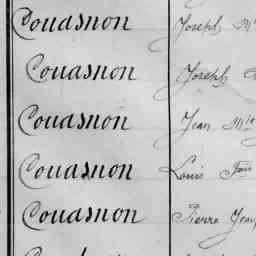 Couasnon Joseph
Couasnon Joseph
Couasnon Jean
Couasnon Louis
Couasnon Pierre